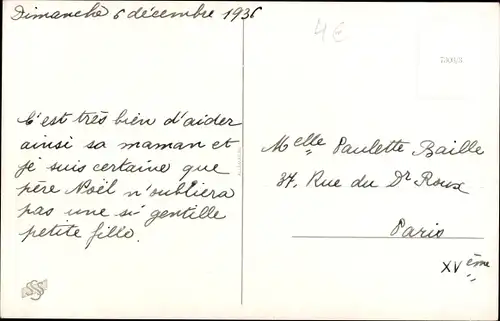 Dimanche 6 décembre 1936
4€
7309/3
C'est très bien d'aider
ainsi sa maman et
je suis certaine que
père Noël n'oubliera
pas une si gentille
petite fille.
Melle Paulette Baille
37, Rue du Dr Roux
Paris
XVème